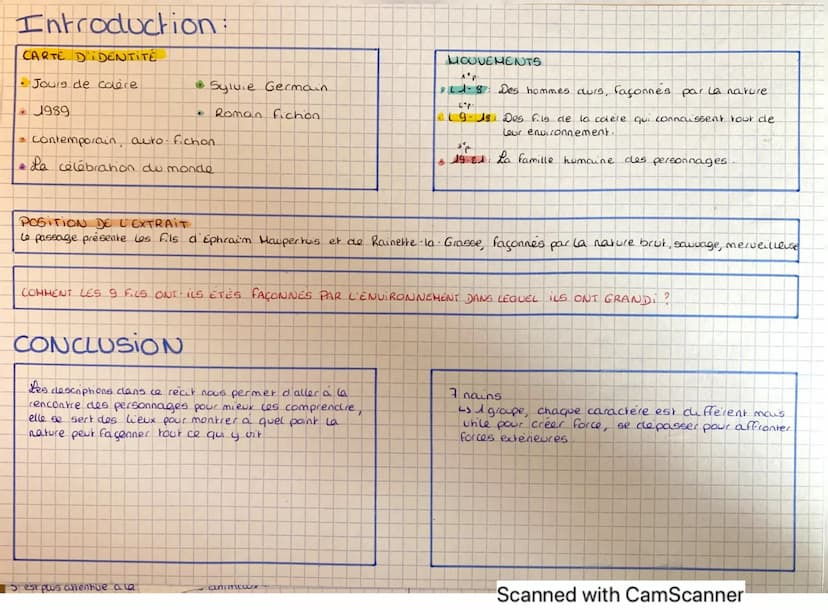 Introduction:
CARTE D'IDENTITÉ
Jours de colère
Sylvie Germain
1989
Roman fiction
contemporain, auto-fiction
La célébration du monde
MOUVEMENTS
1°p
L 1-8: Des hommes durs, façonnés par la nature
2°p
L 9-18: Des fils de la colère qui connaissent tout de
leur environnement.
3°p
19-21: La famille humaine des personnages.
POSITION DE L'EXTRAIT
Le passage présente les fils d'Ephraïm Mauperthuis et de Reinette-la-Grasse, façonnés par la nature brut, sauvage, merveilleuse
COMMENT LES 9 FILS ONT-ILS ÉTÉS FAÇONNÉS PAR L'ENVIRONNEMENT DANS LEQUEL ILS ONT GRANDI ?
CONCLUSION
Les descriptions dans ce récit nous permet d'aller à la
rencontre des personnages pour mieux les comprendre,
elle se sert des lieux pour montrer à quel point la
nature peut façonner tout ce qui y vit
7 nains
↳ 1 groupe, chaque caractère est différent mais
utile pour créer force, se dépasser pour affronter
forces extérieures
est plus attentive à la
animaux
Scanned with CamScanner